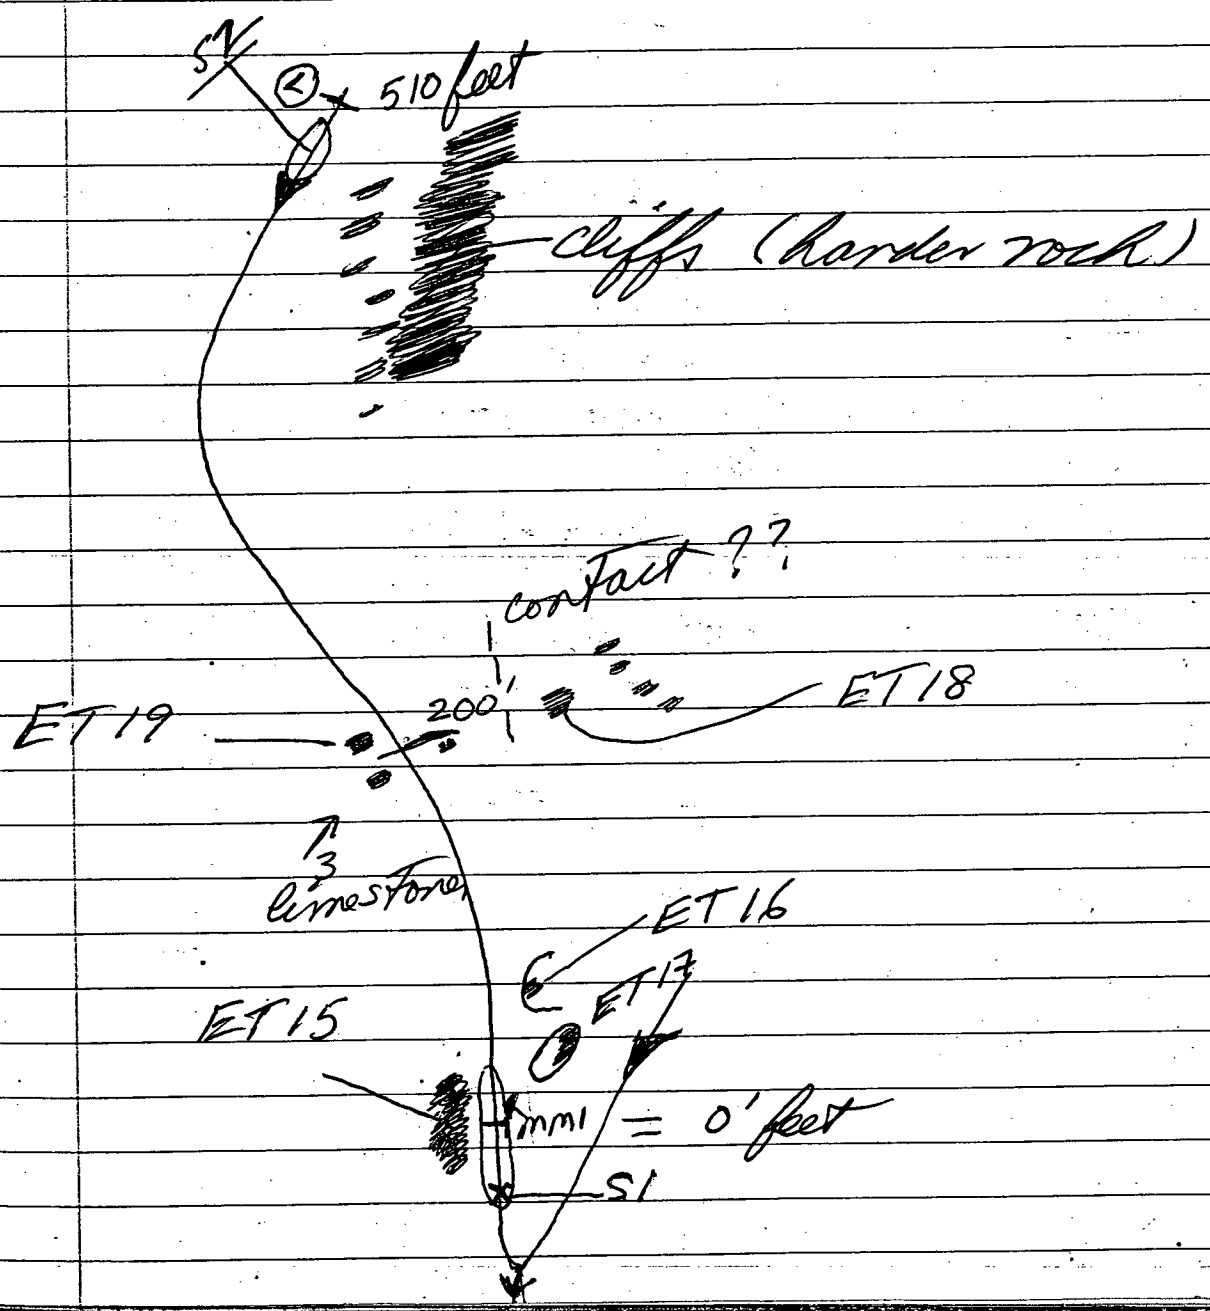 S2
② 510 feet
cliffs (harder rock)
contact ??
200'
ET18
ET19
3
limestone
ET16
ET17
ET15
mm1 = 0' feet
S1